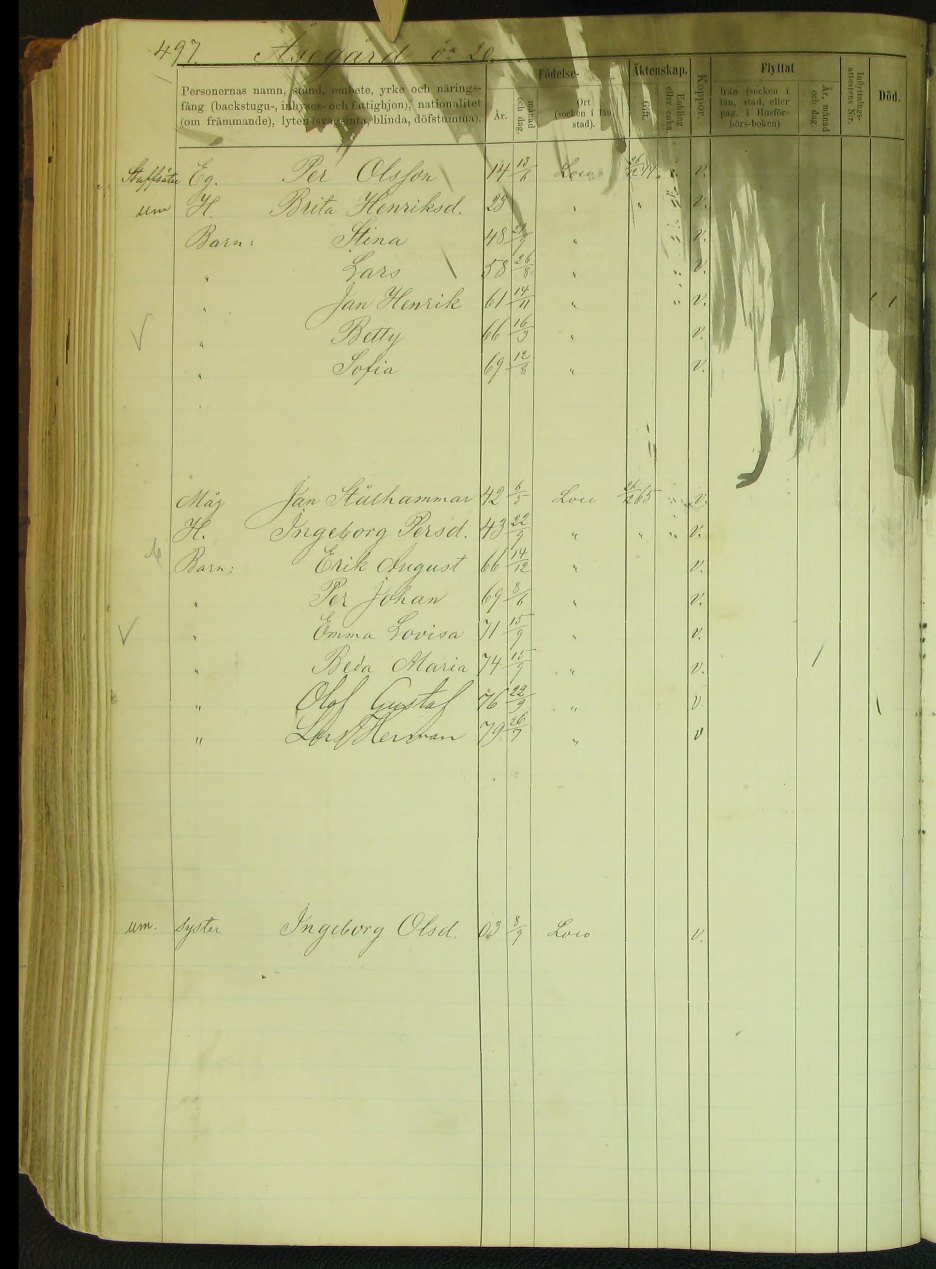 497. Åsegård öa 20.
Personernas namn, stånd, embete, yrke och närings-
fång (backstugu-, inhyses- och fattighjon), nationalitet
(om främmande), lyten (svagsinta, blinda, döfstumma).
Födelse-
År.
månad och dag.
Ort
(socken i län,
stad).
Äktenskap.
Gift.
Enkling eller enka.
Koppor.
Flyttat
från (socken i
län, stad, eller
pag. i Husför-
hörs-boken)
År, månad och dag.
Inflyttnings-attestens N:r.
Död.
Eg. Per Olsson 14 13/6 Loco v.
um H. Brita Henriksd. 23 " " v.
Barn: Stina 48 " v.
" Lars 58 26/8 " v.
" Jan Henrik 61 14/11 " v.
" Betty 66 16/3 " v.
" Sofia 69 12/8 " v.
Måg Jan Stålhammar 42 6/5 Loco 26/12 65 v.
H. Ingeborg Persd. 43 22/9 " " v.
Barn: Erik August 66 14/12 " v.
" Per Johan 69 8/6 " v.
" Emma Lovisa 71 15/9 " v.
" Beda Maria 74 15/9 " v.
" Olof Gustaf 76 22/9 " v.
" Lars Herman 79 26/7 " v
um. syster Ingeborg Olsd. 03 8/9 Loco v.